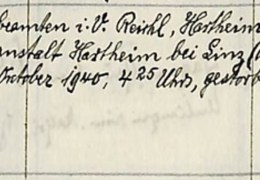 beamten i. V. Reichl, Hartheim
anstalt Hartheim bei Linz (
Oktober 1940, 4 25 Uhr, gestorb